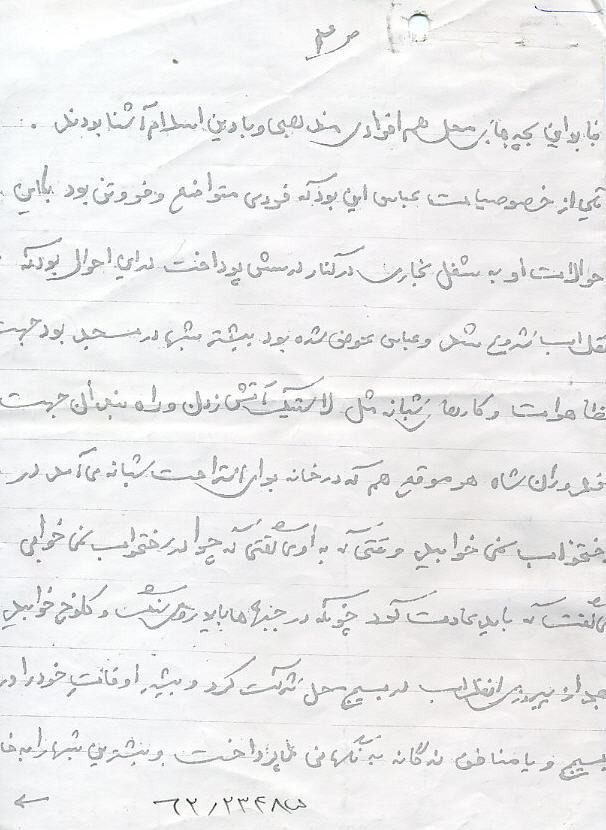 ص ۴
بچه های محل هم افرادی مذهبی و با دین اسلام آشنا بودند .
یکی از خصوصیات عباس این بود که فردی متواضع و فروتن بود با این
احوالات او به شغل نجاری در کنار درسش پرداخت در این احوال بود که
انقلاب شروع شد و عباس عوض شده بود بیشتر شبها در مسجد بود جهت
تظاهرات و کارهای شبانه مثل لاستیک آتش زدن و راه بندان جهت
شاه هر موقع هم که در خانه برای استراحت شبانه می آمد در
رختخواب نمی خوابید وقتی که به او می گفتی که چرا در رختخواب نمی خوابی
می گفت که باید عادت کرد چونکه در جبهه ها باید روی سنگ و کلوخ خوابید
بعد از پیروزی انقلاب در بسیج محل شرکت کرد و بیشتر اوقات خود را در
بسیج و یا مناطق به نگهبانی می پرداخت و بیشترین شبها را به